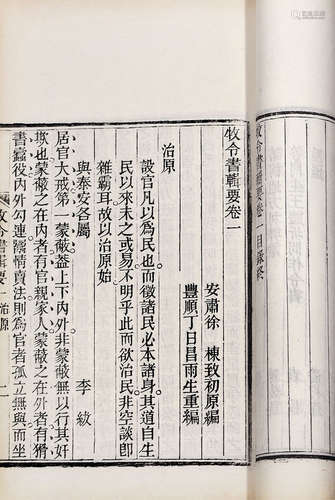 牧令書輯要卷一目錄終
牧令書輯要卷一
安肅徐　棟致初原編
豐順丁日昌雨生重編
治原
設官凡以爲民也而徵諸民必本諸身其道自生
民以來未之或易不明乎此而欲治民非空談卽
雜霸耳故以治原始
與奉安各屬　李紱
居官大戒第一蒙蔽蓋上下內外非蒙蔽無以行其奸
欺也蒙蔽之在內者有官親家人蒙蔽之在外者有猾
書蠹役內外勾連隱情賣法則爲官者孤立無與而坐
牧令書輯要　治原　二